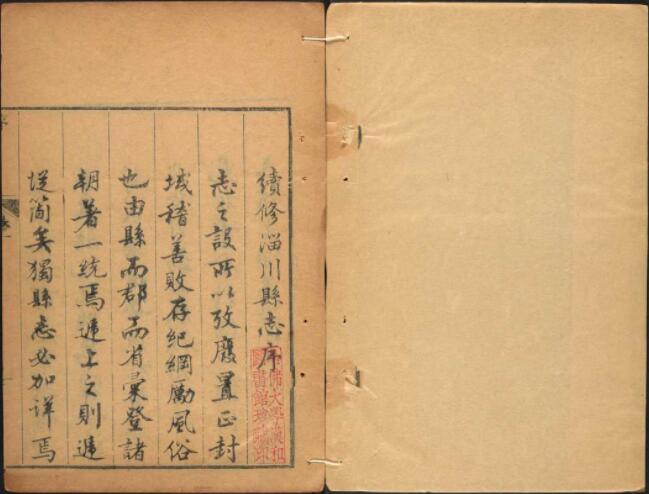 續修淄川縣志序
志之設所以攷廢置正封
域稽善敗存紀綱勵風俗
也由縣而郡而省彙登諸
朝著一統焉遞上之則遞
從簡矣獨縣志必加詳焉
序